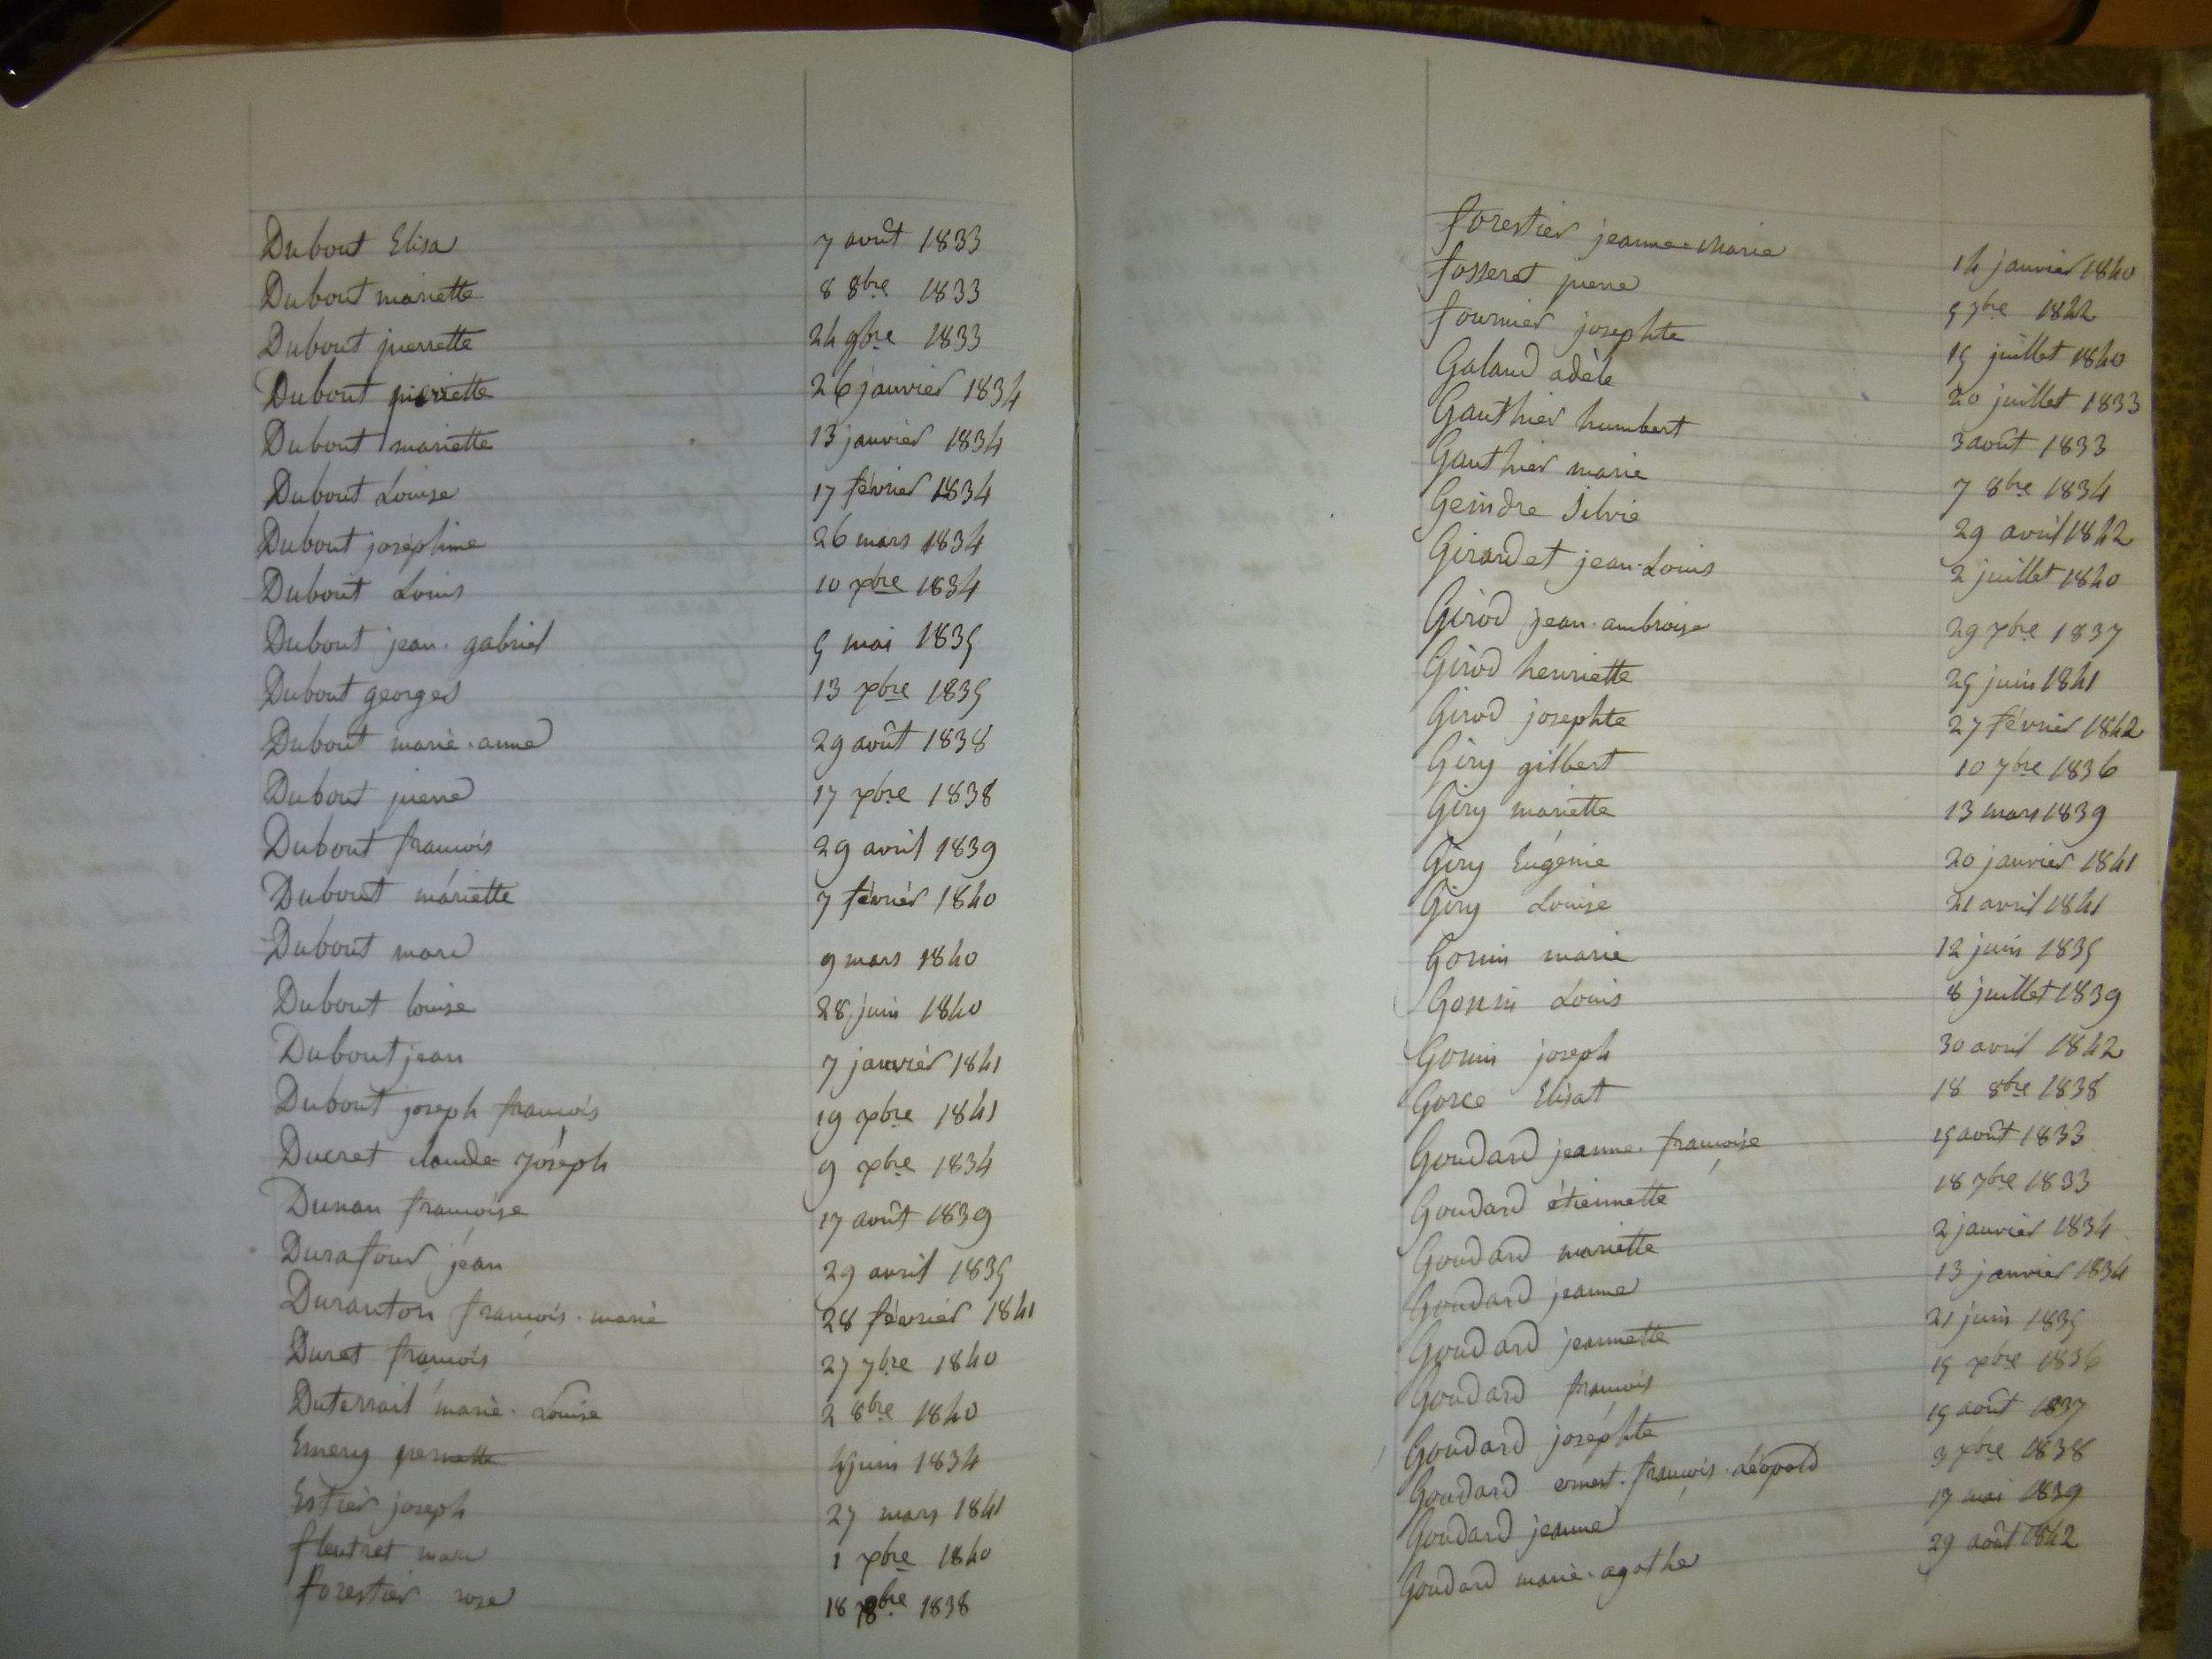 Dubout Elisa 7 août 1833
Dubout mariette 8 8bre 1833
Dubout pierrette 24 9bre 1833
Dubout pierrette 26 janvier 1834
Dubout mariette 13 janvier 1834
Dubout Louise 17 février 1834
Dubout joséphine 26 mars 1834
Dubout Louis 10 xbre 1834
Dubout jean. gabriel 5 mai 1835
Dubout georges 13 xbre 1835
Dubout marie. anne 29 août 1838
Dubout pierre 17 xbre 1838
Dubout françois 29 avril 1839
Dubout mariette 7 février 1840
Dubout marc 9 mars 1840
Dubout louise 28 juin 1840
Dubout jean 7 janvier 1841
Dubout joseph françois 19 xbre 1841
Ducret claude joseph 9 xbre 1834
Dunan françoise 17 août 1839
Durafour jean 29 avril 1835
Duranton françois. marie 28 février 1841
Duret françois 27 7bre 1840
Duterrail marie. Louise 2 8bre 1840
Emery pernette 4 juin 1834
Estier joseph 27 mars 1841
fleutret marc 1 xbre 1840
forestier rose 18 8bre 1838
forestier jeanne. Marie 14 janvier 1840
fosseret pierre 5 7bre 1842
fournier josephte 15 juillet 1840
Galand adèle 20 juillet 1833
Gauthier humbert 3 août 1833
Gauthier marie 7 8bre 1834
Geindre Silvie 29 avril 1842
Girardet jean. Louis 2 juillet 1840
Girod jean. ambroise 29 7bre 1837
Girod henriette 25 juin 1841
Girod josephte 27 février 1842
Giry gilbert 10 7bre 1836
Giry mariette 13 mars 1839
Giry Eugénie 20 janvier 1841
Giry Louise 21 avril 1841
Gonin marie 12 juin 1835
Gonin Louis 8 juillet 1839
Gonin joseph 30 avril 1842
Gorce Elisat 18 8bre 1838
Goudard jeanne. françoise 15 août 1833
Goudard étiennette 18 7bre 1833
Goudard mariette 2 janvier 1834
Goudard jeanne 13 janvier 1834
Goudard jeannette 21 juin 1835
Goudard françois 15 xbre 1836
Goudard joséphte 15 août 1837
Goudard ernest. françois. Léopold 3 xbre 1838
Goudard jeanne 17 mai 1839
Goudard marie. agathe 29 août 1842